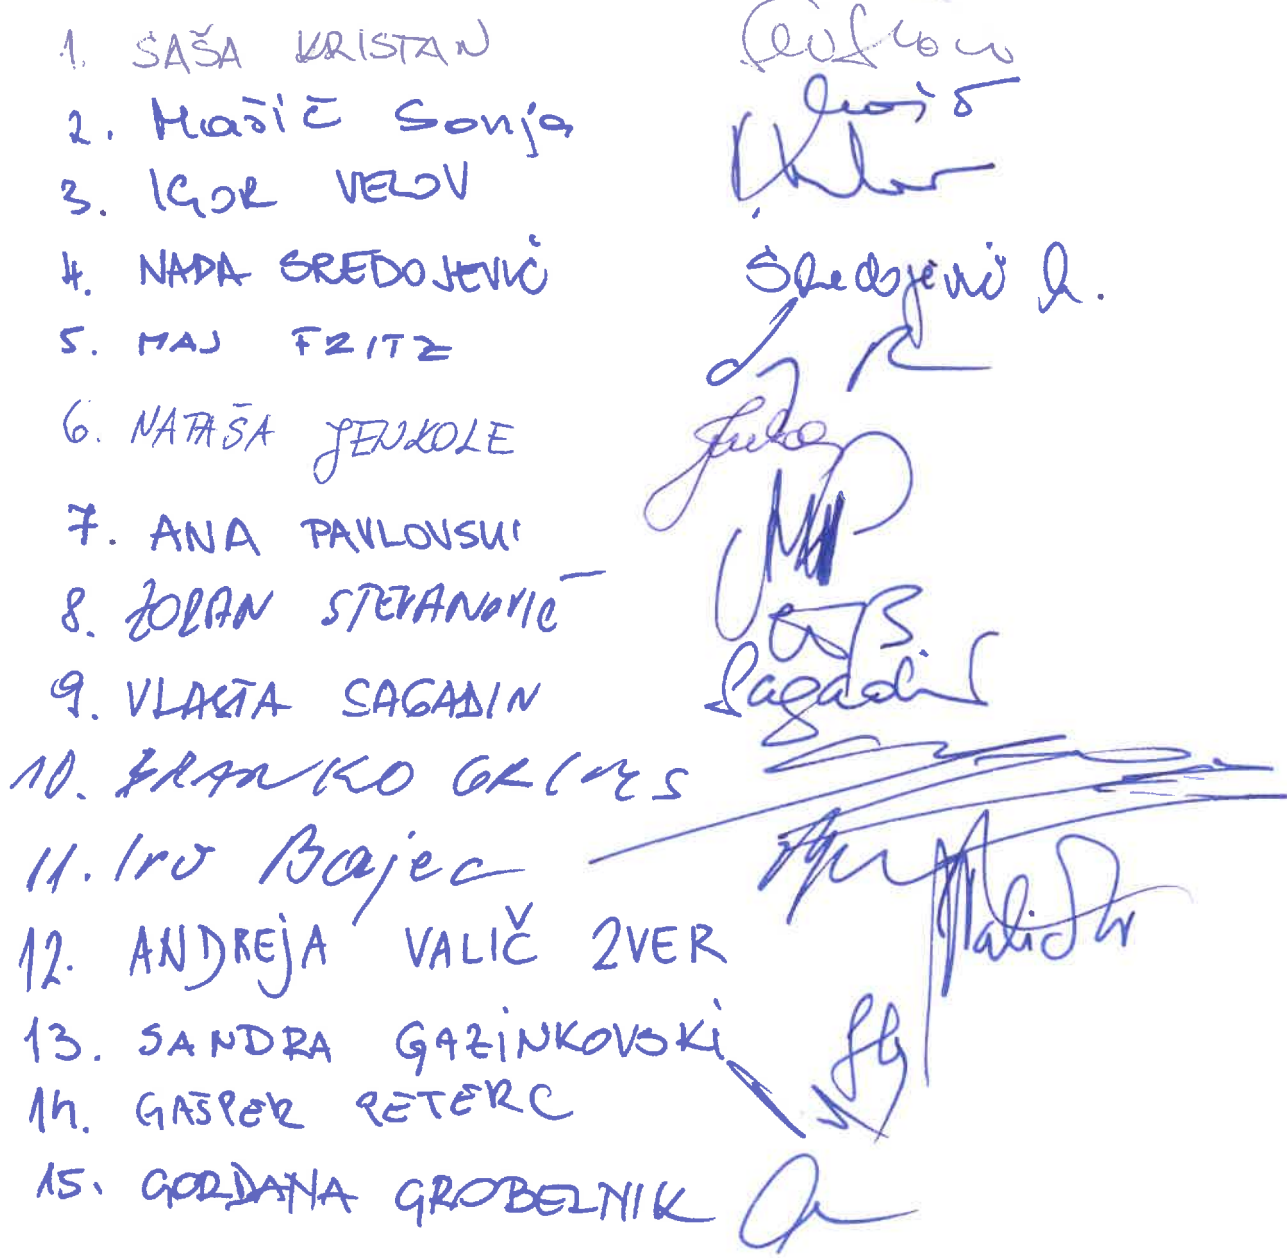 1. SAŠA KRISTAN
2. Mašič Sonja
3. IGOR VELOV
4. NADA SREDOJEVIČ Sredojevič N.
5. MAJ FRITZ
6. NATAŠA JENKOLE
7. ANA PAVLOVSKI
8. ZORAN STEVANOVIČ
9. VLASTA SAGADIN Sagadin
10. BRANKO GRIMS
11. Ivo Bajec
12. ANDREJA VALIČ ZVER
13. SANDRA GAZINKOVSKI
14. GAŠPER PETERC
15. GORDANA GROBELNIK